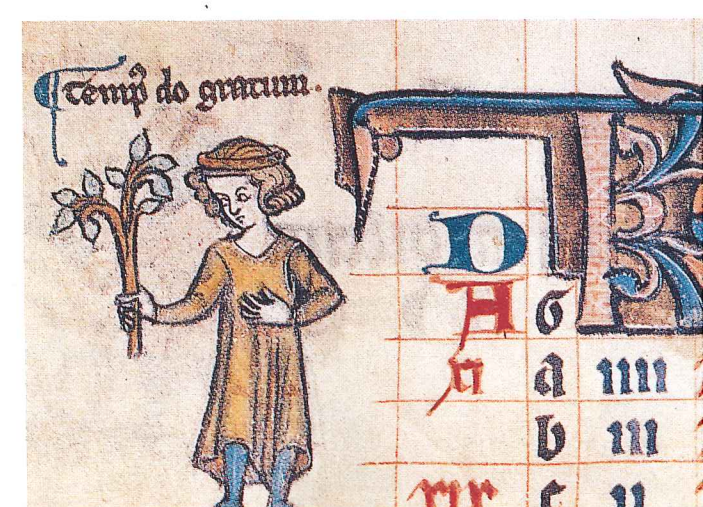 ¶ Temp᷒ do gratum.
D
A G
xi a iiii
b iii
xix c ii